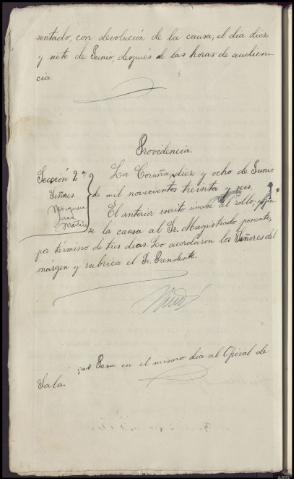 sentado, con devolución de la causa, el día diez
y siete de Junio, después de las horas de audien-
cia.
Providencia.
Sección 2ª
Señores
La Coruña, diez y ocho de Junio
de mil novecientos treinta y seis.
El anterior escrito únase al rollo;
se la causa al Sr. Magistrado ponente,
por término de tres días. Lo acordaron los Señores del
margen y rubrica el Sr. Presidente.
Pasa en el mismo día al Oficial de
Sala.